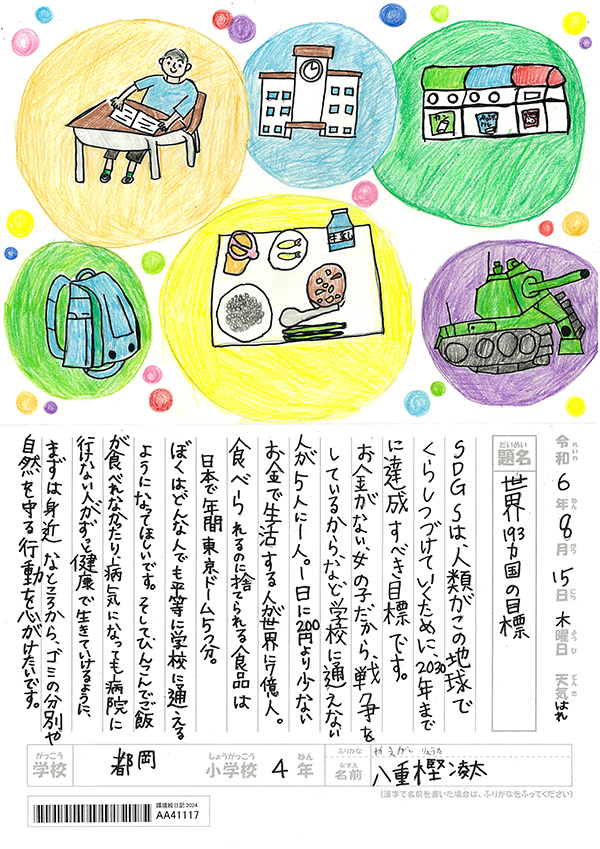 カン
令和6年8月15日木曜日 天気はれ
れいわ ねん がつ にち ようび てんき
だいめい
題名
世界193カ国の目標
SDGSは、人類がこの地球で
くらしつづけていくために、2030年まで
に達成すべき目標です。
お金がない、女の子だから、戦争を
しているから、など学校に通えない
人が5人に一人。一日に200円より少ない
お金で生活する人が世界に7億人。
食べられるのに捨てられる食品は
日本で年間東京ドーム5つ分。
ぼくはどんな人でも平等に学校に通える
ようになってほしいです。そして、ひんこんでご飯
が食べれなかったり病気になっても病院に
行けない人がずっと健康で生きていけるように、
まずは身近なところから、ゴミの分別や
自然を守る行動を心がけたいです。
がっこう
学校
都岡
しょうがっこう
小学校
4
ねん
年
ふりがな
やえがし りょうた
なまえ
名前
八重樫
(漢字で名前を書いた場合は、ふりがなをふってください)
環境絵日記2024
AA41117